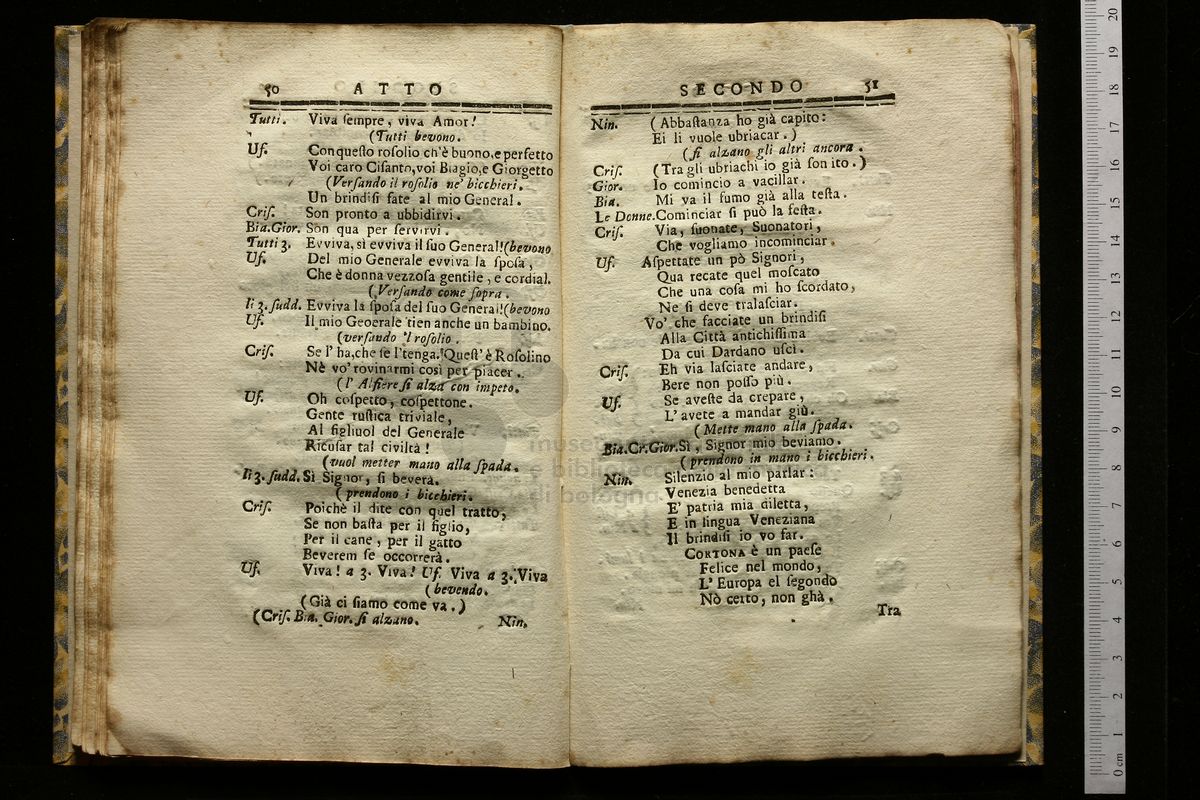 50 ATTO
Tutti. Viva ſempre, viva Amor!
(Tutti bevono.
Uf. Con queſto roſolio ch'è buono, e perfetto
Voi caro Ciſanto, voi Biagio, e Giorgetto
(Verſando il roſolio ne' bicchieri.
Un brindiſi fate al mio General.
Criſ. Son pronto a ubbidirvi.
Bia.Gior. Son qua per ſervirvi.
Tutti 3. Evviva, sì evviva il ſuo General!(bevono
Uf. Del mio Generale evviva la ſpoſa,
Che è donna vezzoſa gentile, e cordial.
(Verſando come ſopra.
li 3. ſudd. Evviva la ſpoſa del ſuo General!(bevono
Uf. Il mio Geoerale tien anche un bambino.
(verſando 'l roſolio.
Criſ. Se l' ha, che ſe l'tenga. Queſt' è Roſolino
Nè vo' rovinarmi così per piacer.
(l' Alfiere ſi alza con impeto.
Uf. Oh coſpetto, coſpettone.
Gente ruſtica triviale,
Al figliuol del Generale
Ricuſar tal civiltà!
(vuol metter mano alla ſpada.
li 3. ſudd. Sì Signor, ſi beverà.
(prendono i bicchieri.
Criſ. Poichè il dite con quel tratto,
Se non baſta per il figlio,
Per il cane, per il gatto
Beverem ſe occorrerà.
Uf. Viva! a 3. Viva! Uf. Viva a 3. Viva
(bevendo.
(Già ci ſiamo come va.)
(Criſ. Bia. Gior. ſi alzano.
Nin.
SECONDO 51
Nin. (Abbaſtanza ho già capito:
Ei li vuole ubriacar.)
(ſi alzano gli altri ancora.
Criſ. (Tra gli ubriachi io già ſon ito.)
Gior. Io comincio a vacillar.
Bia. Mi va il fumo già alla teſta.
Le Donne. Cominciar ſi può la feſta.
Criſ. Via, ſuonate, Suonatori,
Che vogliamo incominciar.
Uf. Aſpettate un pò Signori,
Qua recate quel moſcato
Che una coſa mi ho ſcordato,
Ne ſi deve tralaſciar.
Vo' che facciate un brindiſi
Alla Città antichiſſima
Da cui Dardano uſcì.
Criſ. Eh via laſciate andare,
Bere non poſſo più.
Uf. Se aveſte da crepare,
L' avete a mandar giù.
(Mette mano alla ſpada.
Bia.Cr.Gior. Sì, Signor mio beviamo.
(prendono in mano i bicchieri.
Nin. Silenzio al mio parlar:
Venezia benedetta
E' patria mia diletta,
E in lingua Veneziana
Il brindiſi io vo far.
CORTONA è un paeſe
Felice nel mondo,
L' Europa el ſegondo
Nò certo, non ghà.
Tra